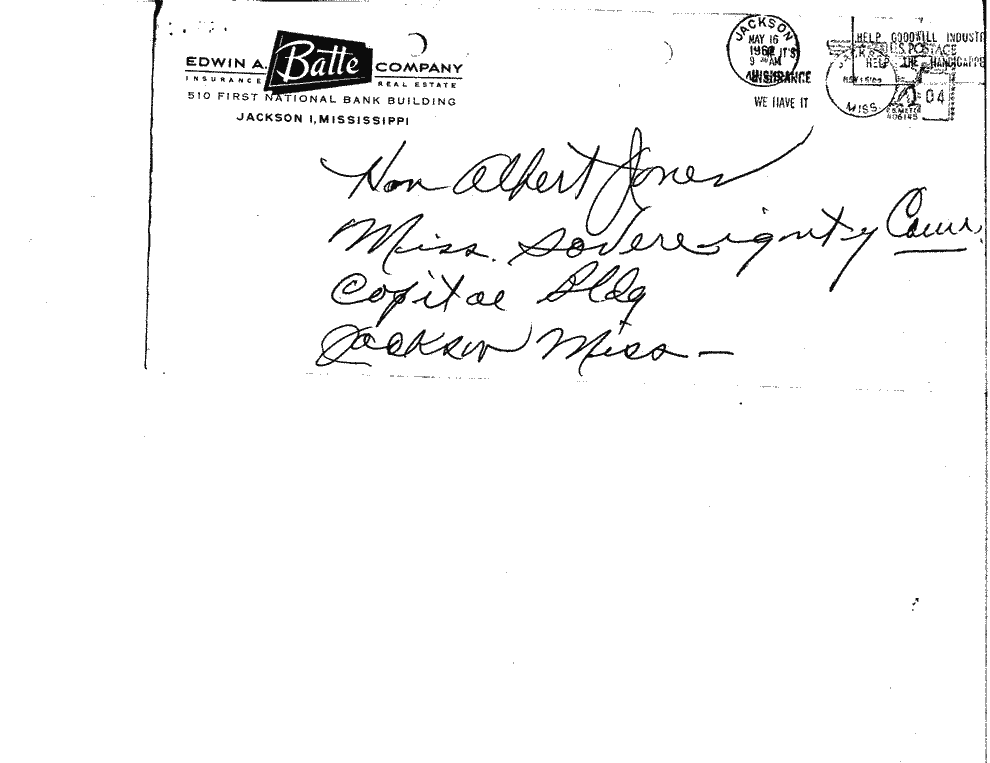 EDWIN A. Batte COMPANY
INSURANCE REAL ESTATE
510 FIRST NATIONAL BANK BUILDING
JACKSON 1, MISSISSIPPI
JACKSON
MAY 16
9 AM
IF IT'S
INSURANCE
WE HAVE IT
HELP GOODWILL INDUST
U.S. POSTAGE
HELP THE HANDICAPPE
MISS.
04
Hon Albert Jones
Miss. Sovereignty Comm.
Capitol Bldg
Jackson Miss —